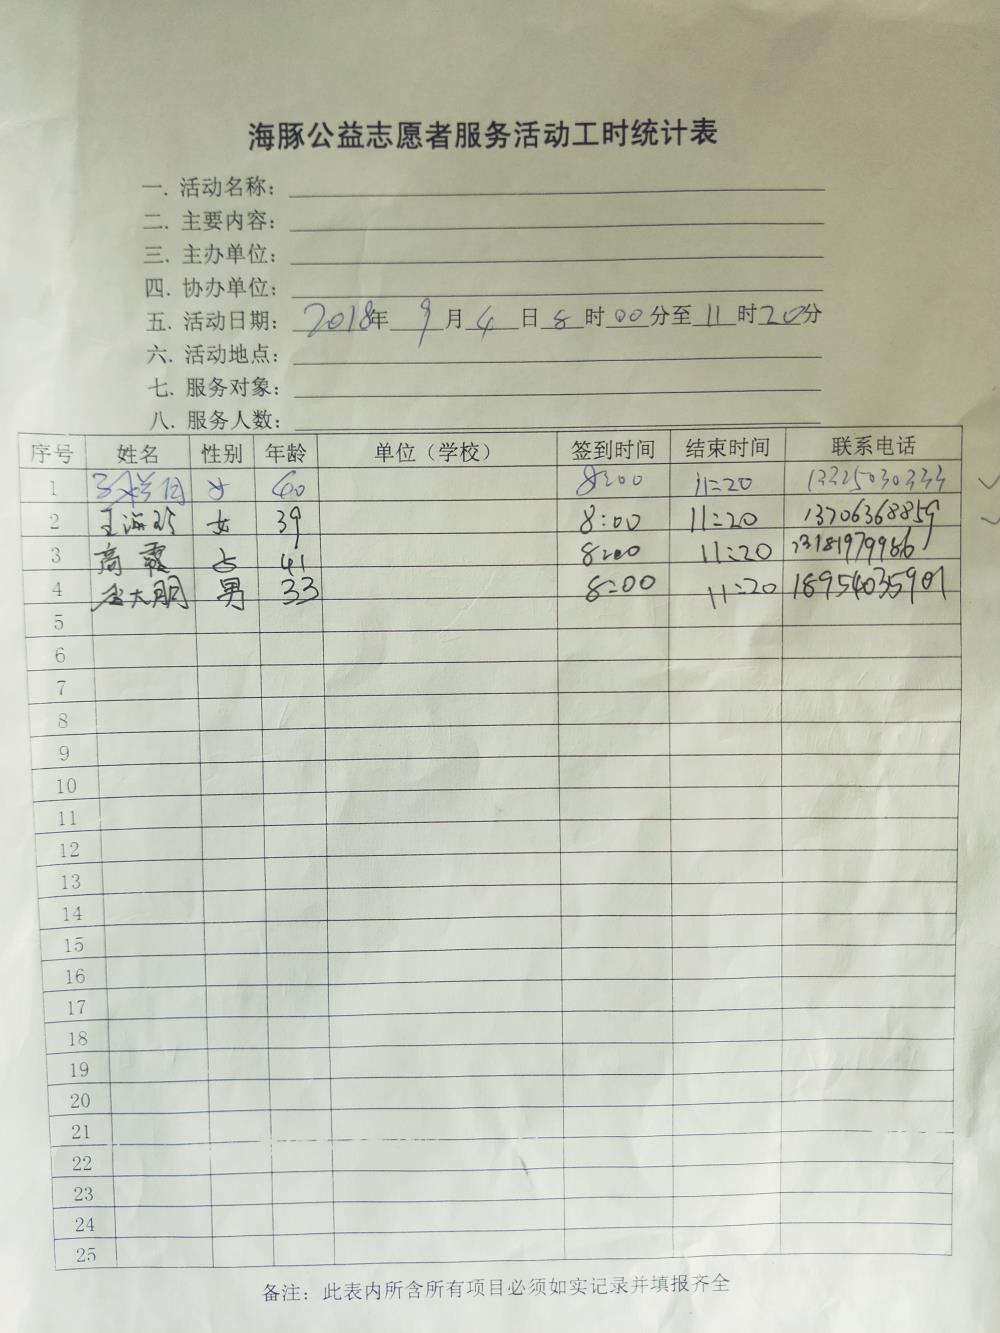 海豚公益志愿者服务活动工时统计表
一. 活动名称:
二. 主要内容:
三. 主办单位:
四. 协办单位:
五. 活动日期: 2018年 9 月 4 日 8 时 00 分至 11 时 20 分
六. 活动地点:
七. 服务对象:
八. 服务人数:
序号 姓名 性别 年龄 单位（学校） 签到时间 结束时间 联系电话
1 女 60 8:00 11:20 13325030333
2 王海玲 女 39 8:00 11:20 13706368859
3 高霞 女 41 8:00 11:20 13181979986
4 大朋 男 33 8:00 11:20 18954035901
5
6
7
8
9
10
11
12
13
14
15
16
17
18
19
20
21
22
23
24
25
备注: 此表内所含所有项目必须如实记录并填报齐全